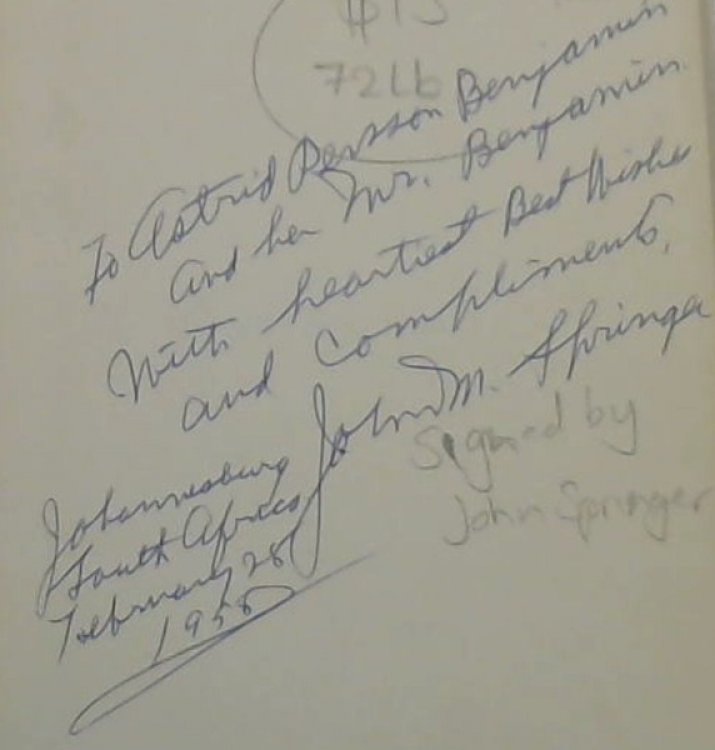 $15
72Lb
To Astrid Persson Benjamin
and her Mr. Benjamin.
With heartiest Best Wishes
and compliments,
John M. Springer
signed by
John Springer
Johannesburg
South Africa
February 28
1958